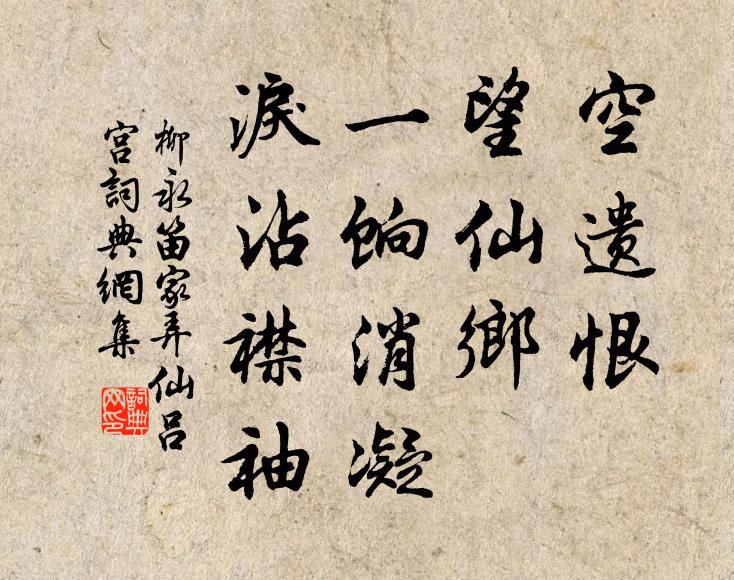 空遗恨
望仙鄉
一餉消凝
淚沾襟袖
柳永笛家弄仙呂
宫詞典網集
詞典
网印